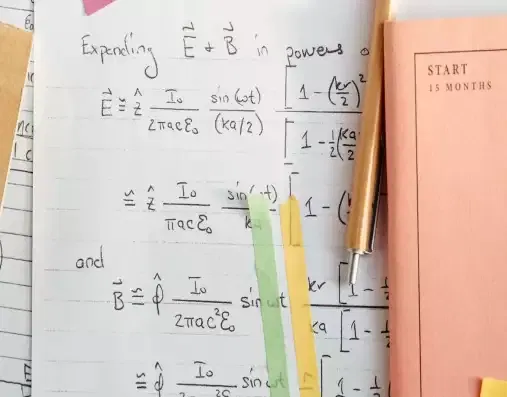 Expending E⃗ + B⃗ in powers
E⃗ ≅ ẑ I₀/(2πacε₀) sin(ωt)/(ka/2) [1 - (kr/2)²] / [1 - ½(ka/2
≅ ẑ I₀/(πacε₀) sin( t)/k [1 - (
and
B⃗ ≅ φ̂ I₀/(2πac²ε₀) sin ωt kr [1 - ½ / ka [1 - ½
≅ φ̂ I₀ sin ωt [1 - ½
START
15 MONTHS